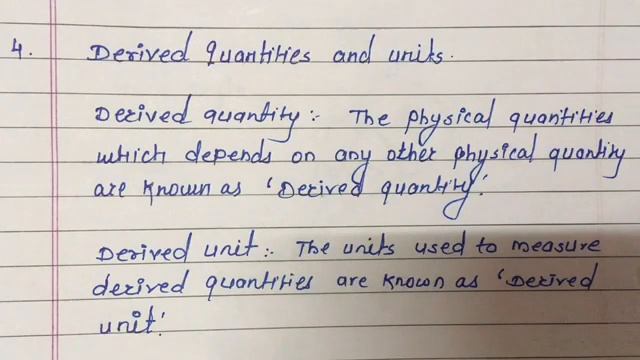 4. Derived quantities and units.
Derived quantity:- The physical quantities
which depends on any other physical quantity
are known as 'Derived quantity'.
Derived unit:- The units used to measure
derived quantities are known as 'Derived
unit'.